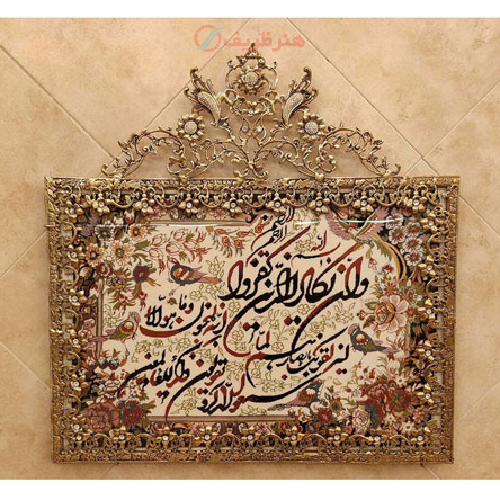 هنر ظریف
بسم
الله
الرحمن
الرحیم
وان یکاد الذین کفروا
لیزلقونک بابصارهم لما
سمعوا الذکر و
یقولون انه لمجنون
وما هو الا
ذکر للعالمین